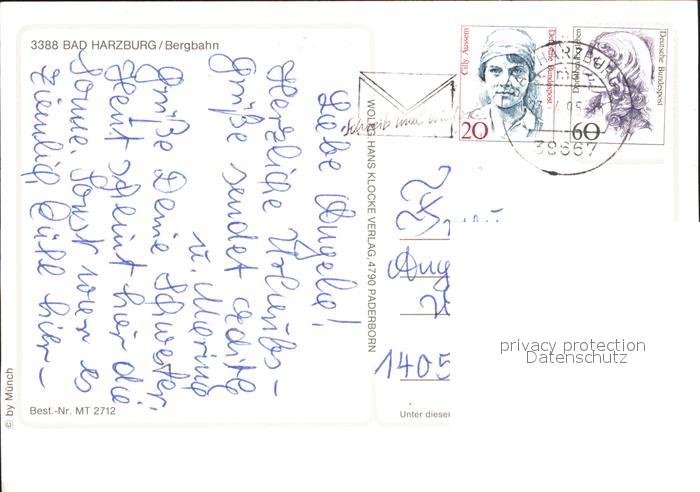 3388 BAD HARZBURG/Bergbahn
Liebe Angela!
Herzliche Urlaubs-
Grüße sendet Edith
u. Marina
Grüße Deine Schwester.
Heut scheint hier die
Sonne. Sonst war es
ziemlich kühl hier-
Best.-Nr. MT 2712
© by Münch
WOLFG. HANS KLOCKE VERLAG, 4790 PADERBORN
Cilly Aussem
Deutsche Bundespost
20
Deutsche Bundespost
60
BAD HARZBURG
38667
Schreib mal wieder
Ang
1405
Unter dieser
privacy protection
Datenschutz